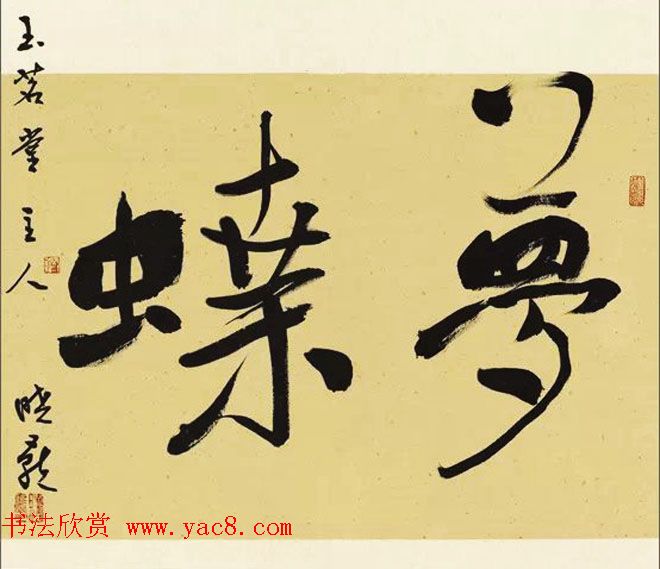 夢蝶
玉茗堂主人
晓龙
书法欣赏 www.yac8.com